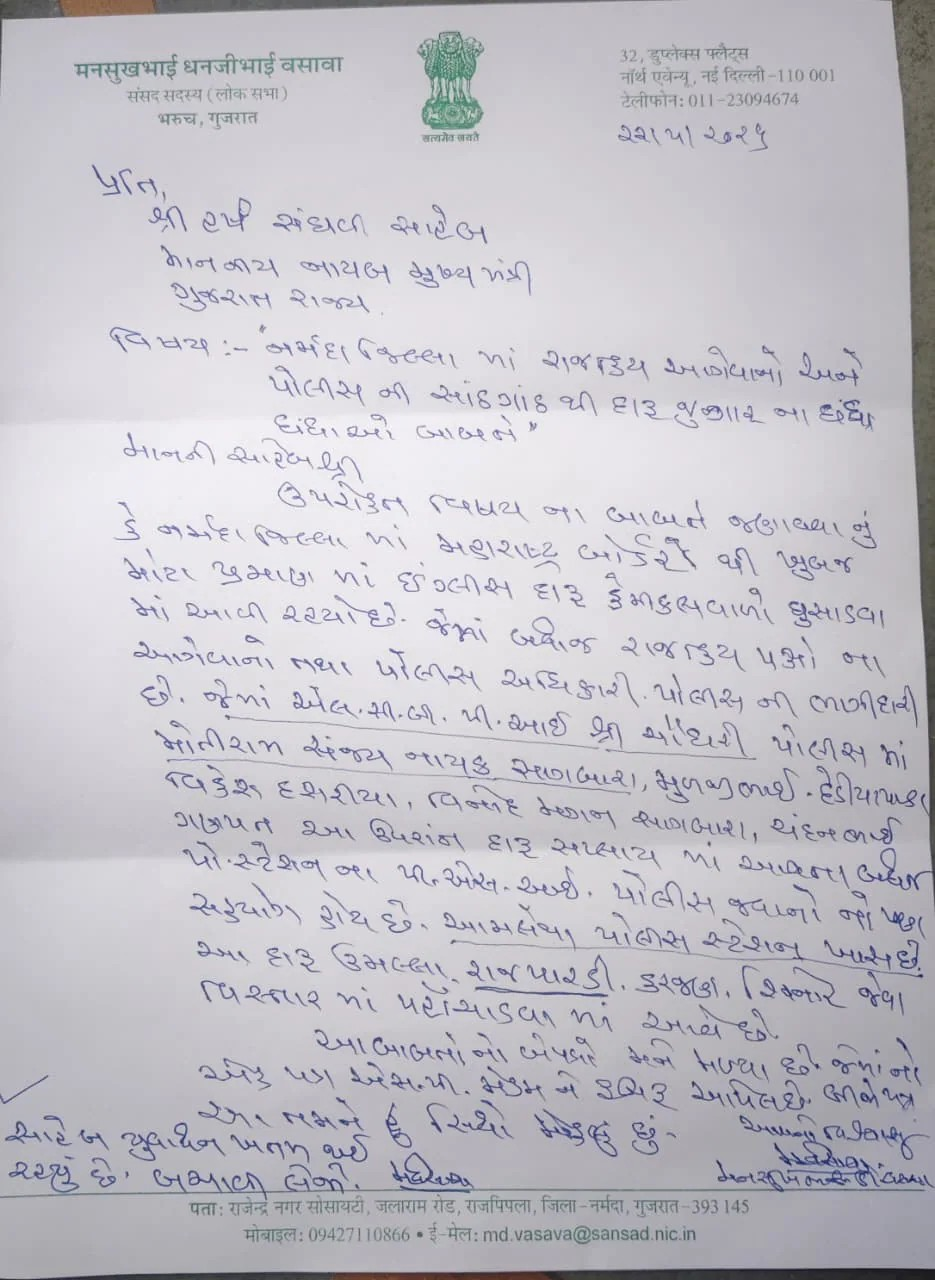 मनसुखभाई धनजीभाई वसावा
संसद सदस्य (लोक सभा)
भरुच, गुजरात
सत्यमेव जयते
32, डुप्लेक्स फ्लैट्स
नॉर्थ एवेन्यू, नई दिल्ली-110 001
टेलीफोन: 011-23094674
પ્રતિ,
શ્રી હર્ષ સંઘવી સાહેબ
માનનીય નાયબ મુખ્ય મંત્રી
ગુજરાત રાજ્ય.
વિષય :- "નર્મદા જિલ્લા માં રાજકિય આગેવાનો અને
પોલીસ ની સાંઠગાંઠ થી દારૂ જુગાર ના
ધંધાઓ બાબતે"
માનની સાહેબશ્રી
ઉપરોક્ત વિષય ના બાબતે જણાવવાનું
કે નર્મદા જિલ્લા માં મહારાષ્ટ્ર બોર્ડરો થી ખુબજ
મોટા પ્રમાણ માં ઈંગ્લીસ દારૂ કેમીકલવાળો ઘુસાડવા
માં આવી રહ્યો છે. જેમાં બધાજ રાજકિય પક્ષો ના
આગેવાનો તથા પોલીસ અધિકારી. પોલીસ ની ભાગીદારી
છે. જેમાં એલ.સી.બી. પી.આઈ શ્રી ચૌધરી પોલીસ માં
મોતીરામ સંજય નાયક સાગબારા, મુળજીભાઈ. દેડીયાપાડા
વિકેશ દશરીયા, વિનોદ મગન સાગબારા, ચંદનભાઈ
ગણપત આ ઉપરાંત દારૂ સપ્લાય માં આવતા બધાજ
પો.સ્ટેશન ના પી.એસ.આઈ. પોલીસ જવાનો નો પણ
સહયોગ હોય છે. આમલેથા પોલીસ સ્ટેશન ખાસ છે.
આ દારૂ ઉમલ્લા. રાજપારડી. કરજણ. શિનોર જેવા
વિસ્તાર માં પહોંચાડવા માં આવે છે.
આ બાબતનો બે પત્રો મને મળ્યા છે. જેમાંનો
એક પત્ર એસ.પી. મેડમ ને રૂબરૂ આપેલ છે. બીજો પત્ર
આ તમને હું સિધો મોકલું છું.
સાહેબ યુવાધન ખતમ થઈ
રહ્યું છે. બચાવી લેજો.
આપનો વિશ્વાસુ
पता: राजेन्द्र नगर सोसायटी, जलाराम रोड, राजपिपला, जिला-नर्मदा, गुजरात-393 145
मोबाइल: 09427110866 • ई-मेल: md.vasava@sansad.nic.in